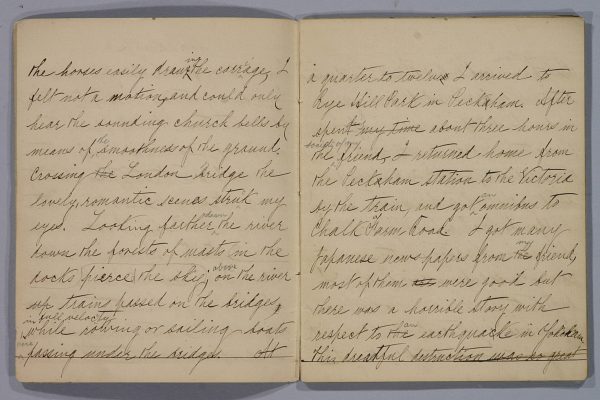 the horses easily drawing the corrage, I
felt not a motion, and could only
hear the sounding church bells by
means of the smoothness of the ground.
Crossing the London Bridge the
lovely, romantic scenes struk my
eyes. Looking farther down the river
down the forests of masts in the
docks pierce the sky; above on the river
up trains passed on the bridges,
in full velocity
while rowing or sailing-boats
were passing under the bridges. At
a quarter to twelve I arrived to
Rye Hill Park in Peckham. After
spent my time about three hours in
society of my
the friend, I returned home from
the Peckham Station to the Victoria
by the train, and got an omnibus to
Chalk Farm Road. I got many
Japanese news papers from my the friend,
most of them were good but
there was a horrible story with
respect to the an earthquacke in
this dreatful destruction was so great